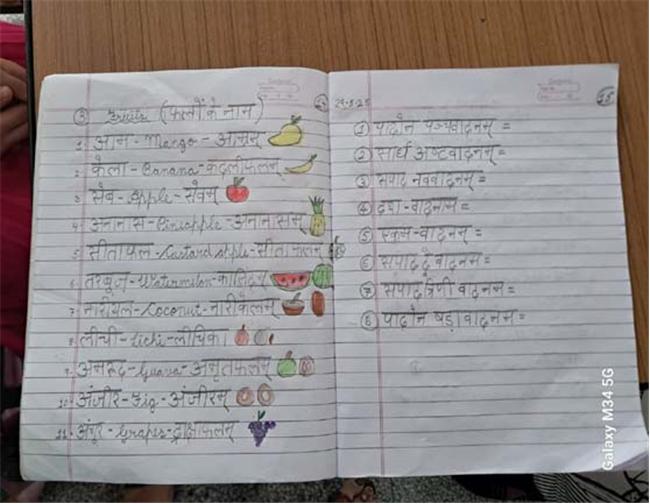 ③ Fruits (फलों के नाम)
1. आम - Mango - आम्रम्
2. केला - Banana - कदलीफलम्
3. सेब - Apple - सेवम्
4. अनानास - Pineapple - अनानासम्
5. सीताफल - Custard apple - सीताफलम्
6. तरबूज - Watermelon - कालिंदम्
7. नारीयल - Coconut - नारीकेलम्
8. लीची - Lichi - लीचिका
9. अमरूद - Guava - अमृतफलम्
10. अंजीर - Fig - अंजीरम्
11. अंगूर - Grapes - द्राक्षाफलम्
① पादोन पञ्चवादनम् =
② सार्ध अष्टवादनम् =
③ सपाद नववादनम् =
④ दश - वादनम् =
⑤ एकम् - वादनम् =
⑥ सपाद द्वे वादनम =
⑦ संपाद त्रिणी वादनम =
⑧ पादोन षड़ावादनम =
Galaxy M34 5G